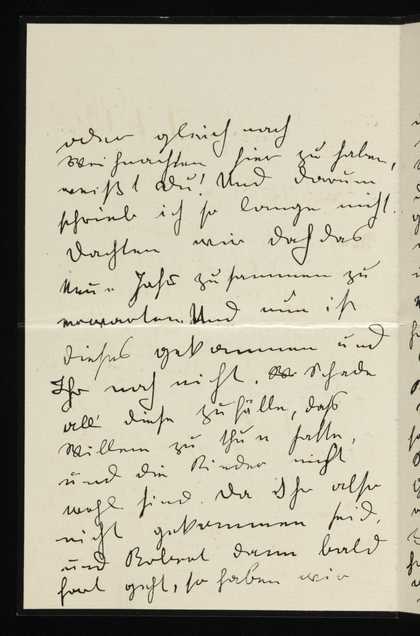 oder gleich nach
Weihnachten hier zu haben,
weißt Du! Und darum
schrieb ich so lange nicht.
Dachten wir doch das
neue Jahr zusammen zu
erwarten. Und nun ist
dieses gekommen und
Ihr noch nicht. Schade
all diese Zufälle, daß
Willem zu thun hatte,
und die Kinder nicht
wohl sind. Da Ihr also
nicht gekommen seid,
und Robert dann bald
fort geht, so haben wir